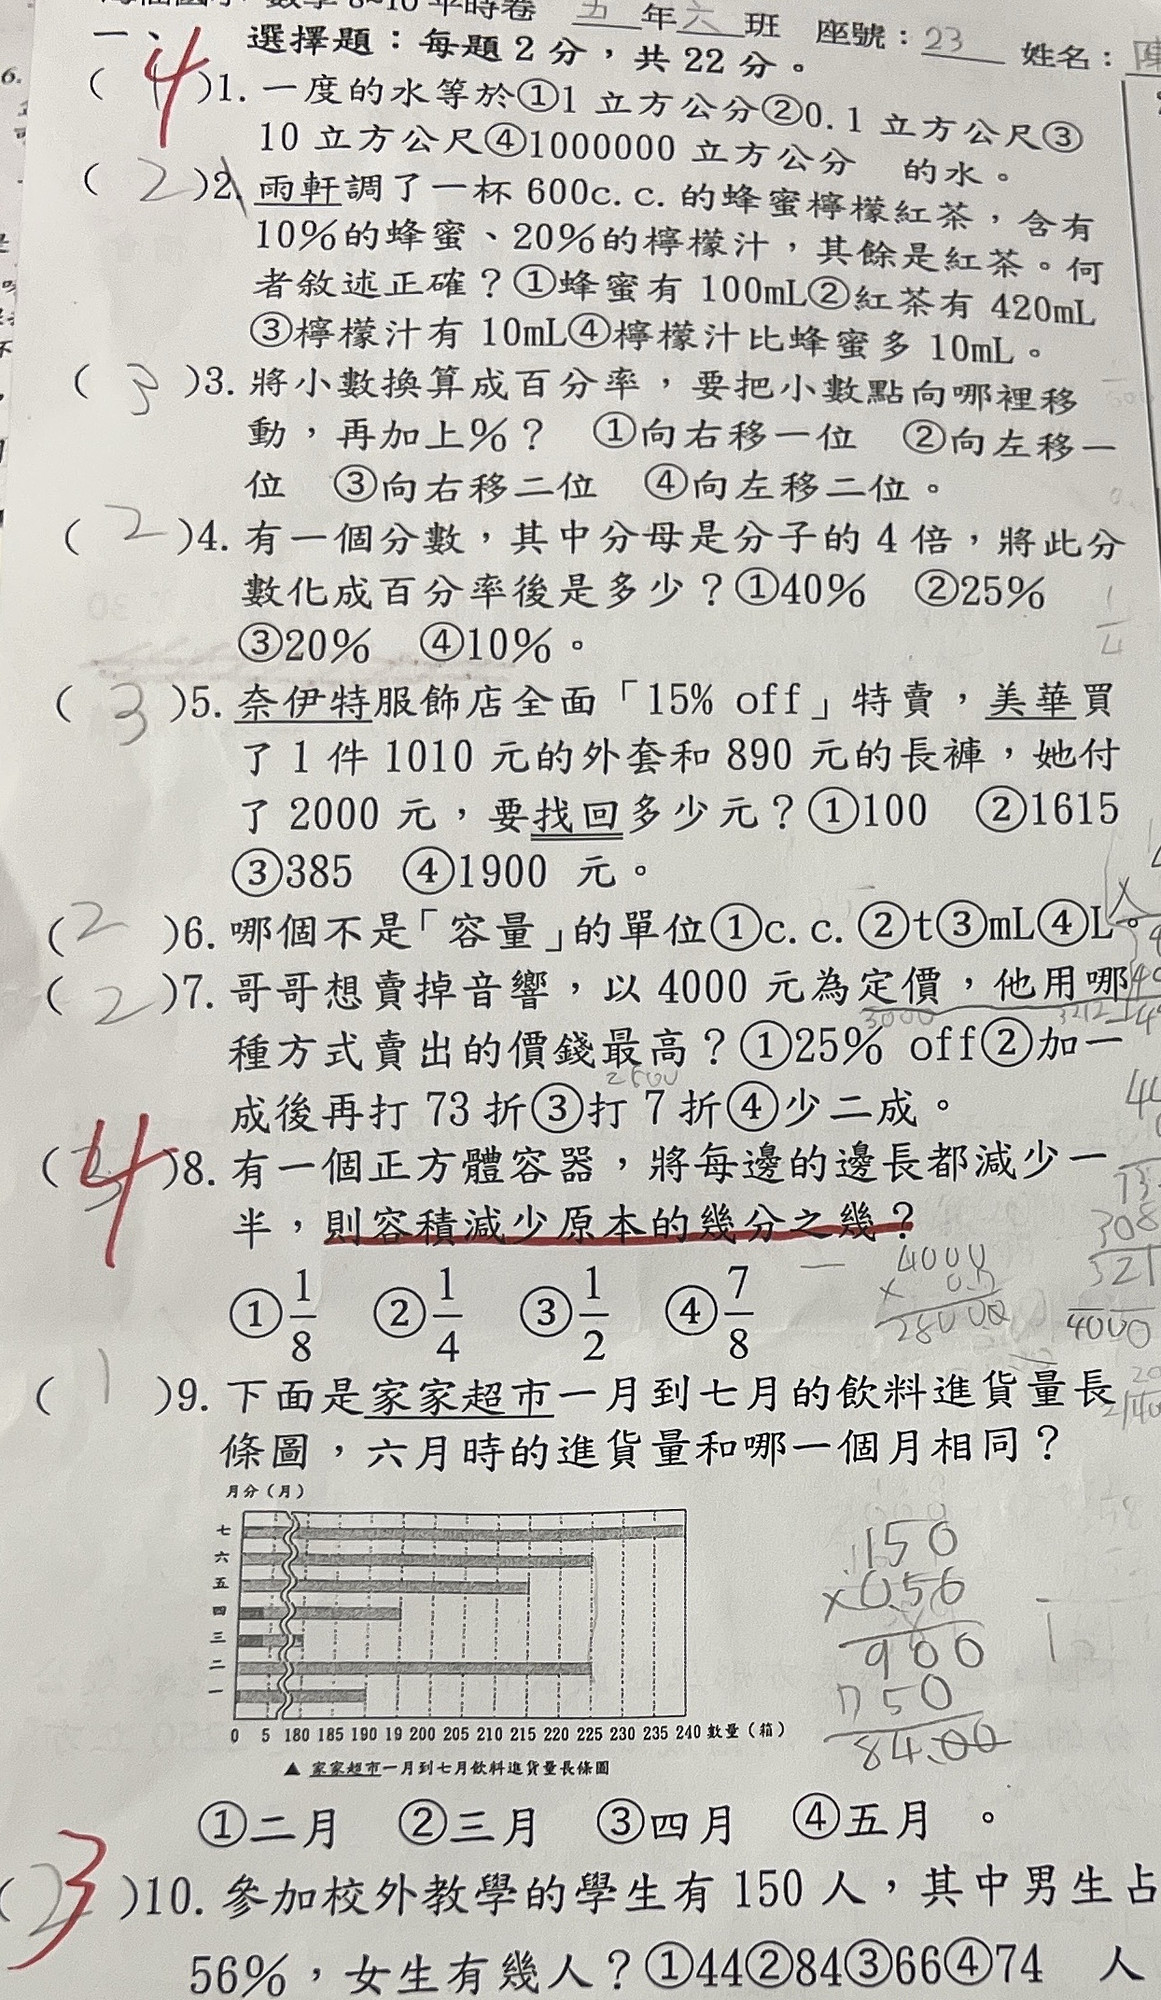 數學 8~10 平時卷 五年六班 座號：23 姓名：陳
一、選擇題：每題2分，共22分。
( 4 )1. 一度的水等於①1 立方公分②0.1 立方公尺③
10 立方公尺④1000000 立方公分 的水。
( 2 )2. 雨軒調了一杯 600c.c.的蜂蜜檸檬紅茶，含有
10%的蜂蜜、20%的檸檬汁，其餘是紅茶。何
者敘述正確？①蜂蜜有 100mL②紅茶有 420mL
③檸檬汁有 10mL④檸檬汁比蜂蜜多 10mL。
( 3 )3. 將小數換算成百分率，要把小數點向哪裡移
動，再加上%？ ①向右移一位 ②向左移一
位 ③向右移二位 ④向左移二位。
( 2 )4. 有一個分數，其中分母是分子的 4 倍，將此分
數化成百分率後是多少？①40% ②25%
③20% ④10%。
1/4
( 3 )5. 奈伊特服飾店全面「15% off」特賣，美華買
了 1 件 1010 元的外套和 890 元的長褲，她付
了 2000 元，要找回多少元？①100 ②1615
③385 ④1900 元。
( 2 )6. 哪個不是「容量」的單位①c.c.②t③mL④L。
( 2 )7. 哥哥想賣掉音響，以 4000 元為定價，他用哪
3000 3212
種方式賣出的價錢最高？①25% off②加一
2800
成後再打 73 折③打 7 折④少二成。
( 4 )8. 有一個正方體容器，將每邊的邊長都減少一
半，則容積減少原本的幾分之幾？
①1/8 ②1/4 ③1/2 ④7/8
4000
× 0.7
28000
308
321
4000
( 1 )9. 下面是家家超市一月到七月的飲料進貨量長
條圖，六月時的進貨量和哪一個月相同？
月分（月）
七
六
五
四
三
二
一
0 5 180 185 190 19 200 205 210 215 220 225 230 235 240 數量（箱）
▲ 家家超市一月到七月飲料進貨量長條圖
150
×0.56
900
750
84.00
①二月 ②三月 ③四月 ④五月 。
( 3 )10. 參加校外教學的學生有 150 人，其中男生占
56%，女生有幾人？①44②84③66④74 人